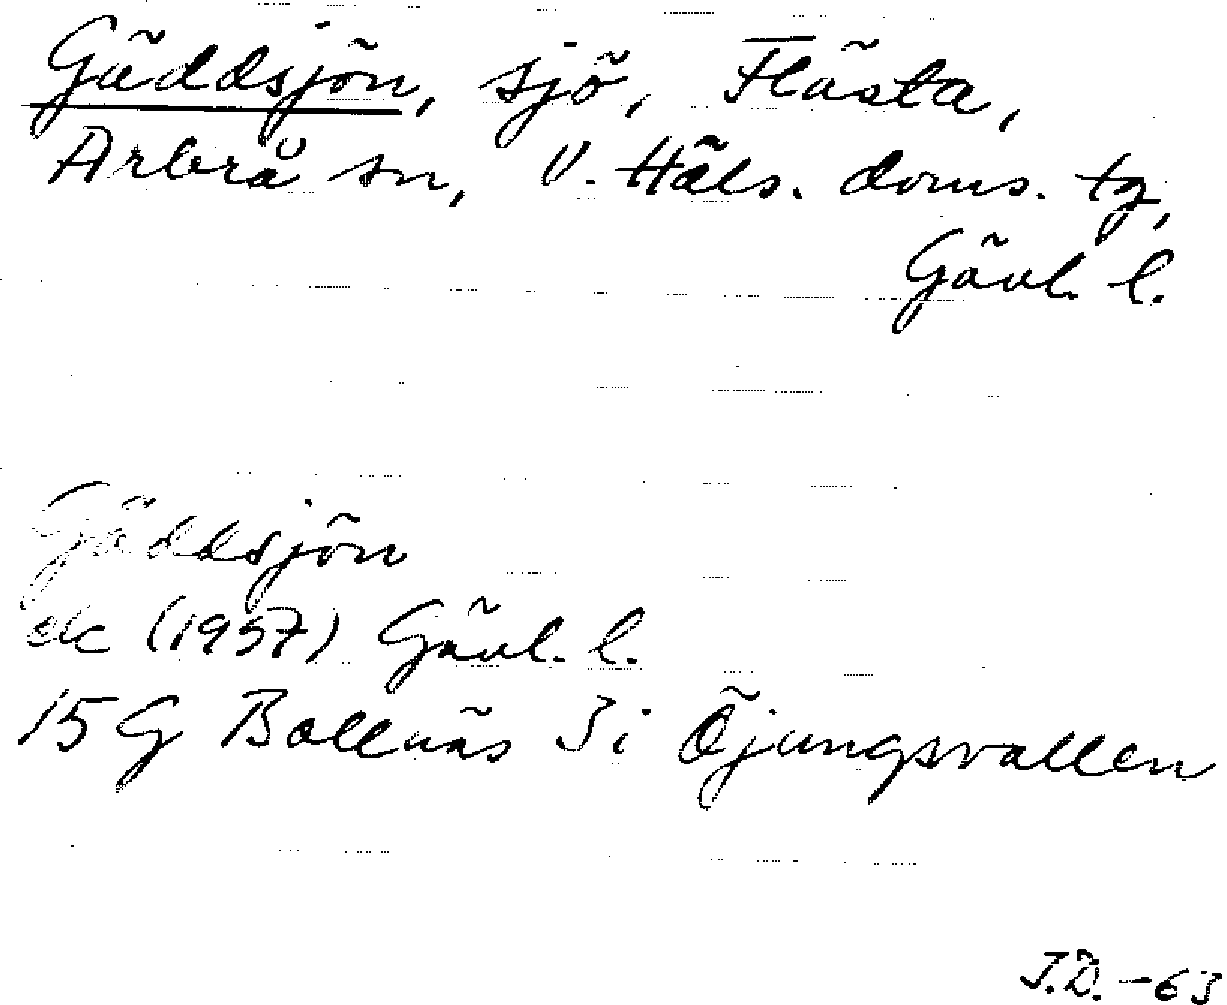 Gäddsjön, sjö, Flästa,
Arbrå sn, V. Häls. doms. tg,
Gävl. l.
Gäddsjön
ek (1957) Gävl. l.
15 G Bollnäs 3i Öjungsvallen
J.D. -63